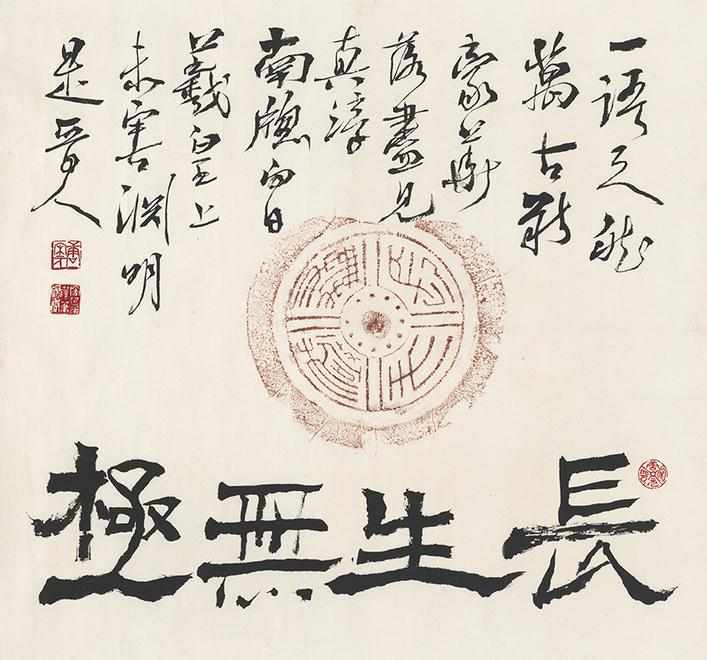 一語天然
萬古新
豪華
落盡見
真淳
南牕白日
羲皇上
未害淵明
是晉人
長生無極
長生無極